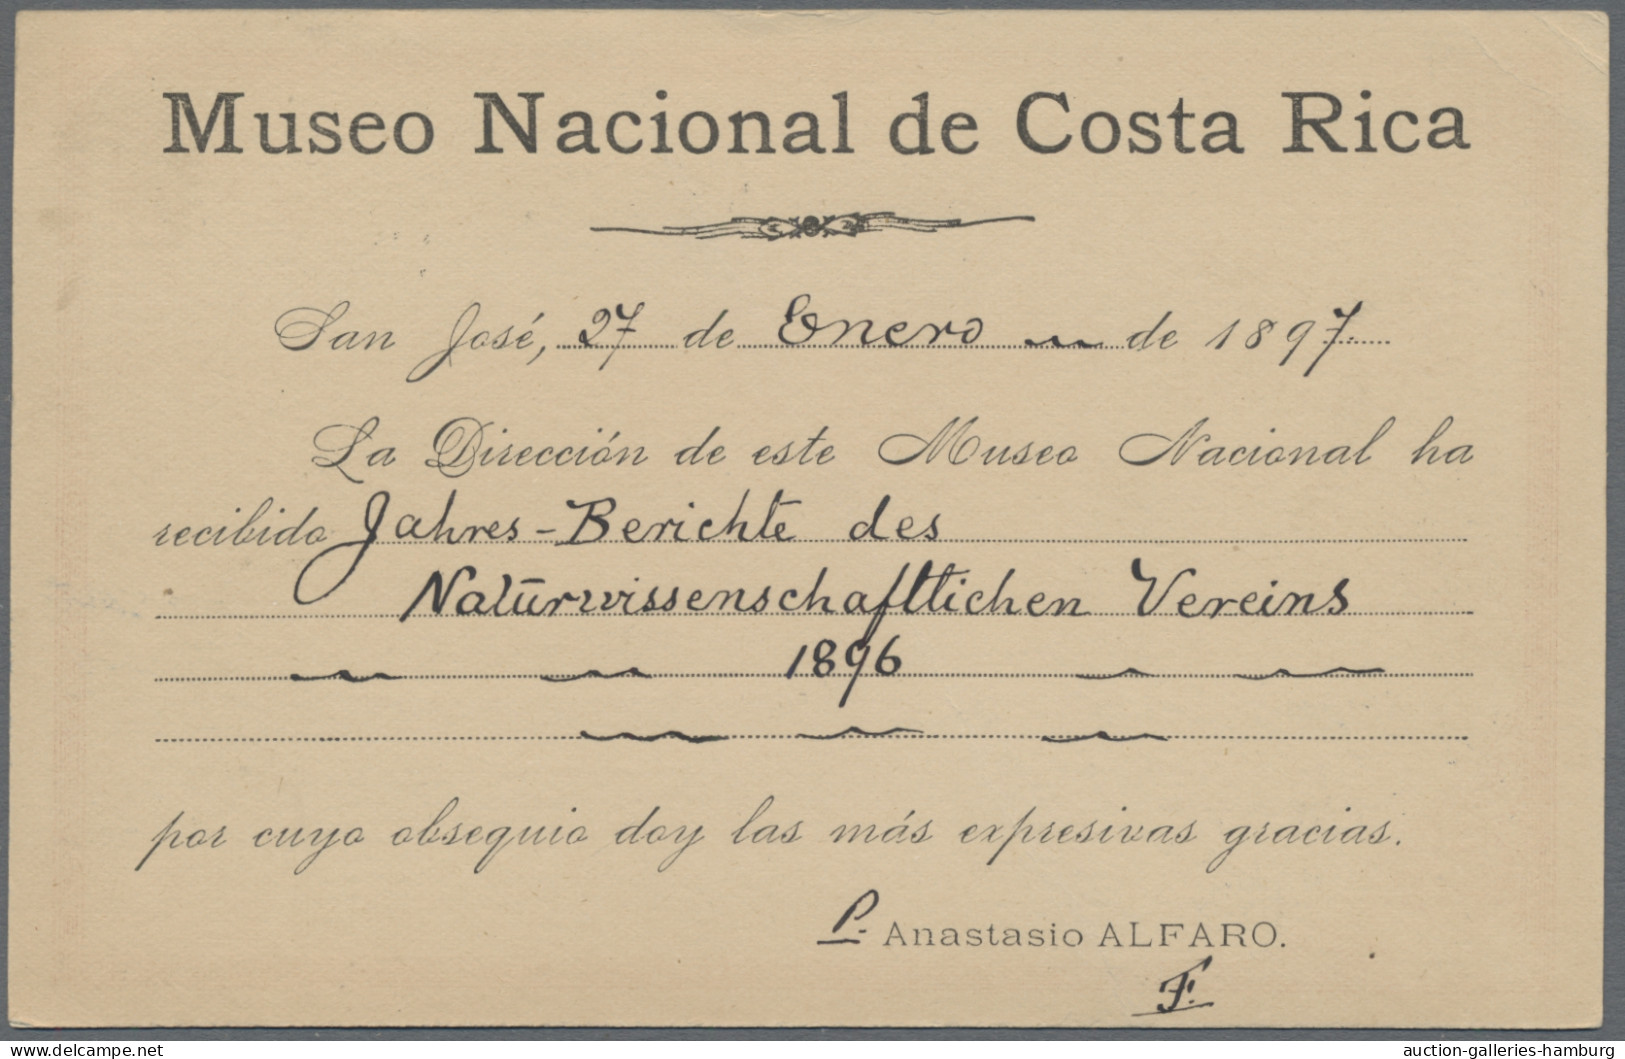 Museo Nacional de Costa Rica
San José, 27 de Enero de 1897.
La Dirección de este Museo Nacional ha
recibido Jahres-Berichte des
Naturwissenschaftlichen Vereins
1896
por cuyo obsequio doy las más expresivas gracias.
P. Anastasio ALFARO.
F.
delcampe.net
auction-galleries-hamburg